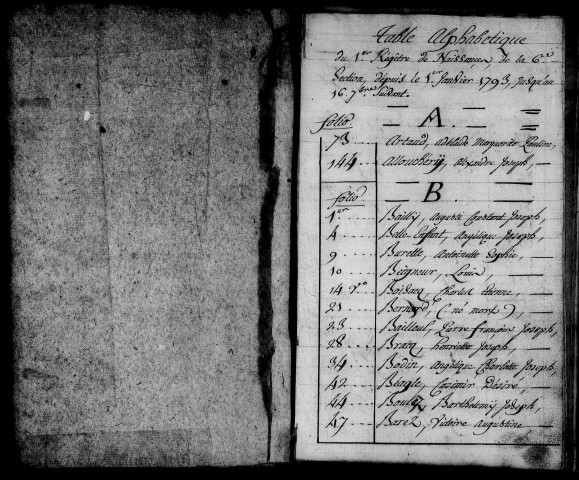 Table Alphabetique
du 1.er Régistre de Naissances de la 6.e
Section, depuis le 1.er Janvier 1793, jusqu'au
16. 7.bre Suivant.
A.
folio.
73 Artaud, adelaide Marguerite Pauline,
144 Allouchery, Alexandre Joseph,
B.
folio
1.er Bailly, Auguste Constant Joseph,
4 Belle Enfant, Angélique Joseph,
9 Barette, Antoinette Sophie,
10 Beigneur, Louise,
14 v.o Boisacq, Charles Etienne,
21 Bernard, (né mort),
23 Bailleul, Pierre françois Joseph,
28 Bracq, henriette Joseph,
34 Bodin, Angélique Charlotte Joseph,
42 Béagle, Casimir Désiré,
44 Barthelemy Joseph,
47 Barez, Victoire Augustine